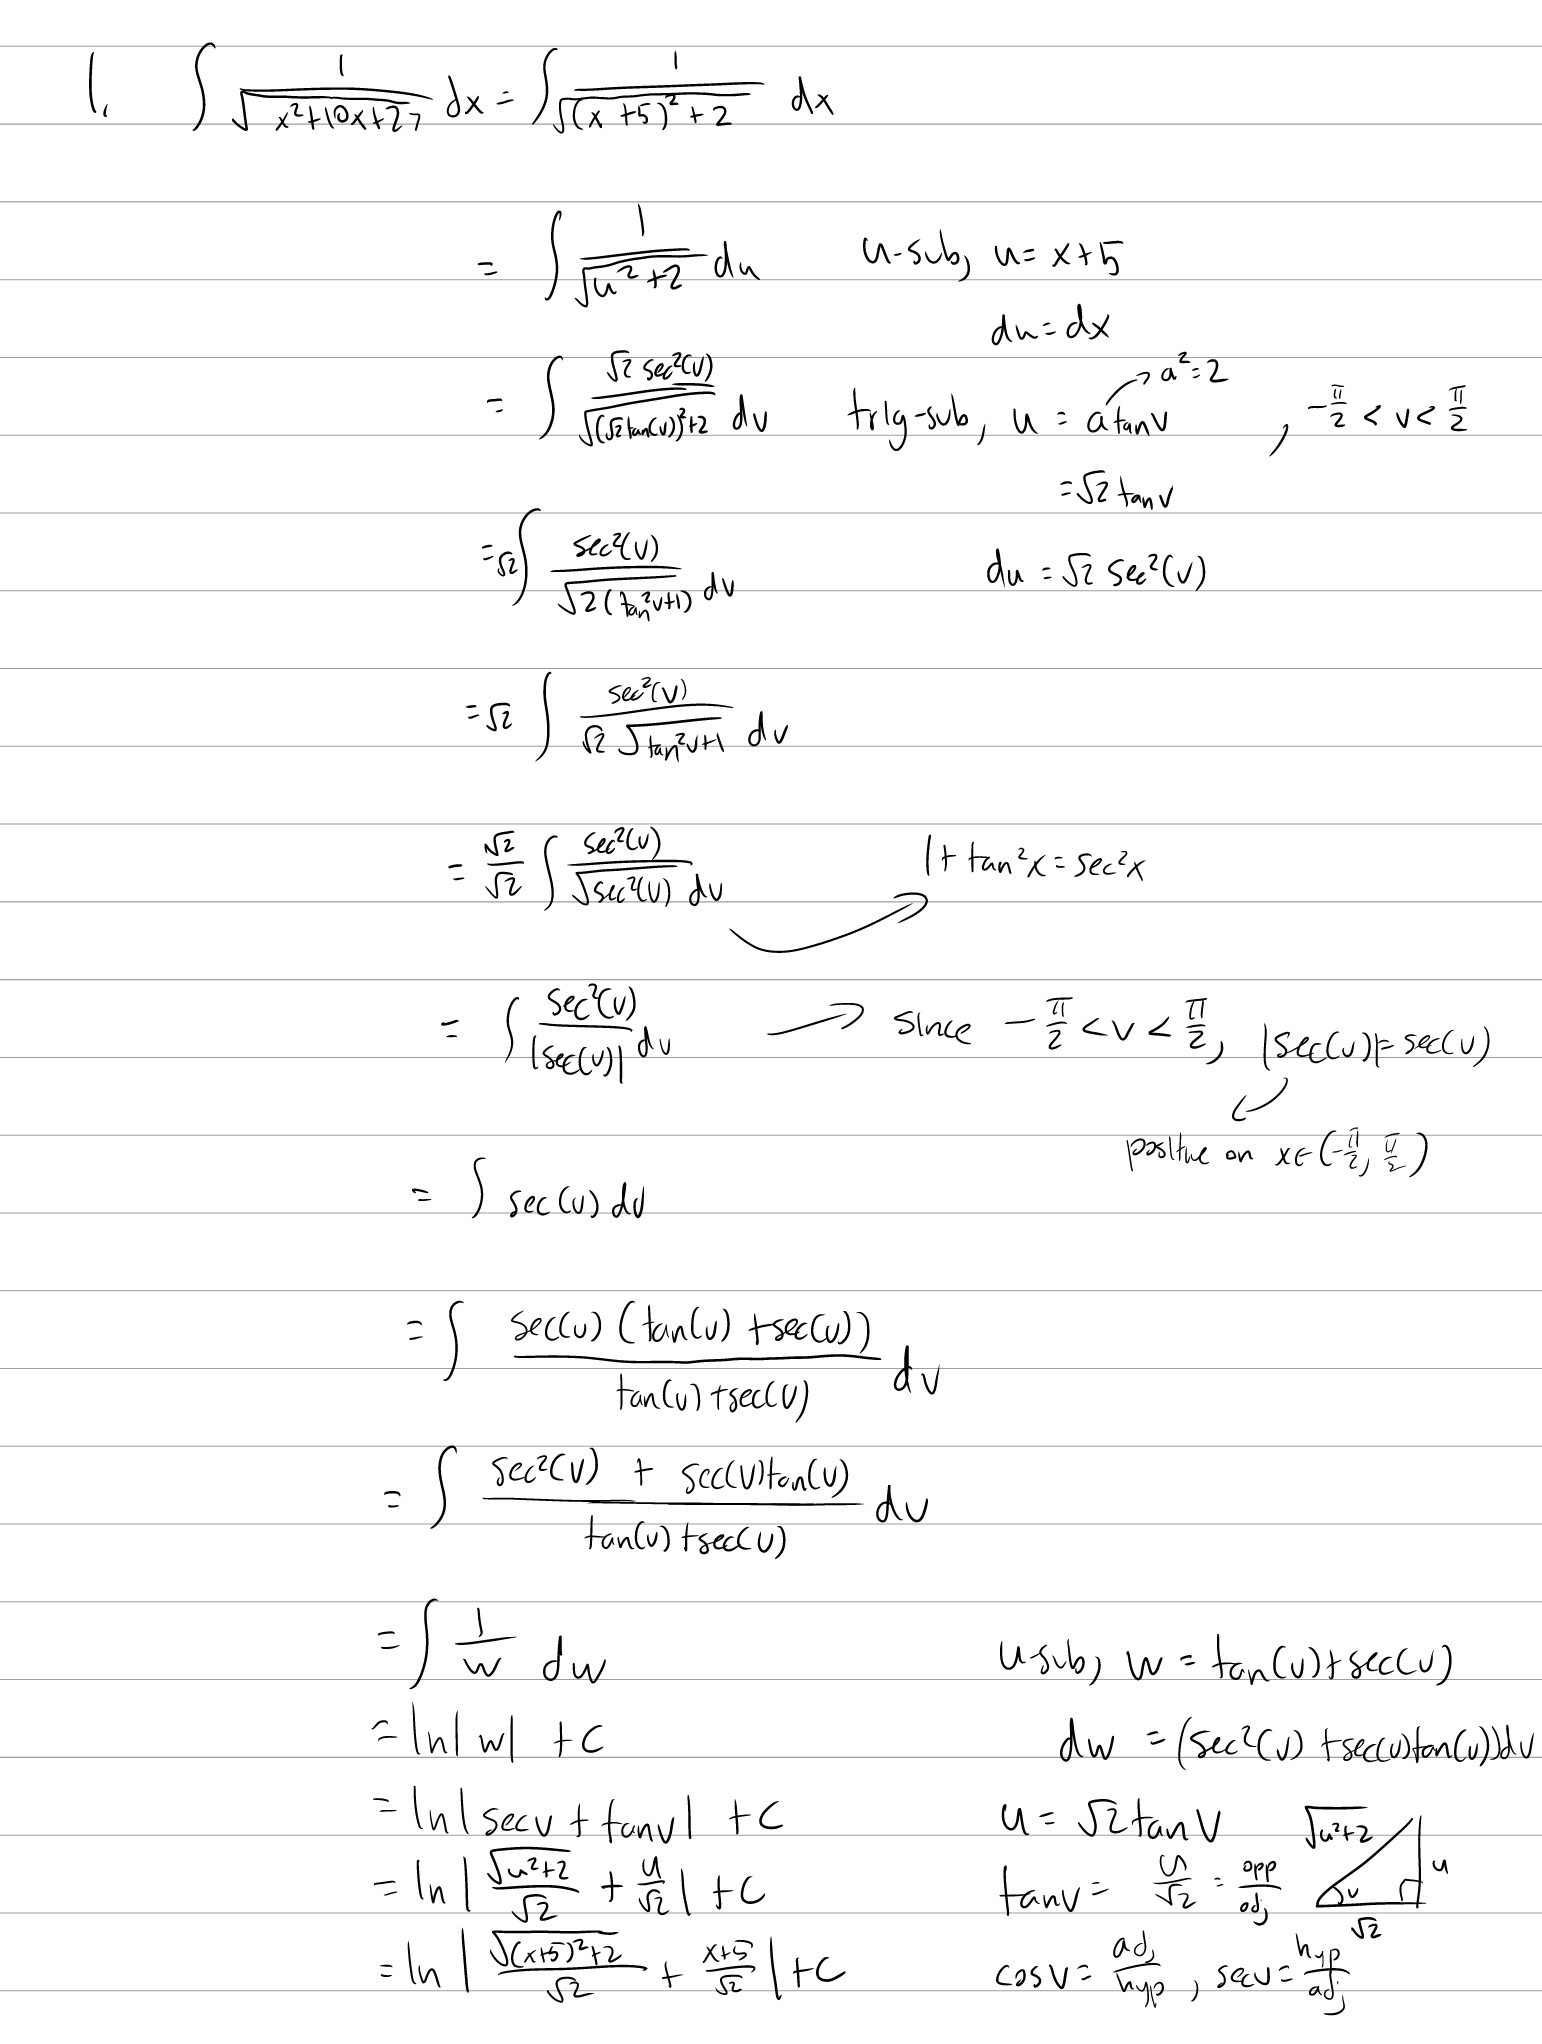 1. ∫ 1/√(x²+10x+27) dx = ∫ 1/√((x+5)²+2) dx
= ∫ 1/√(u²+2) du u-sub, u = x+5
du = dx
= ∫ √2 sec²(v)/√((√2tan(v))²+2) dv trig-sub, u = a tanv → a²=2 , -π/2 < v < π/2
= √2 tanv
= √2 ∫ sec²(v)/√(2(tan²v+1)) dv du = √2 sec²(v)
= √2 ∫ sec²(v)/(√2 √(tan²v+1)) dv
= √2/√2 ∫ sec²(v)/√(sec²(v)) dv → 1+tan²x = sec²x
= ∫ sec²(v)/|sec(v)| dv → since -π/2 < v < π/2, |sec(v)| = sec(v)
positive on x∈(-π/2, π/2)
= ∫ sec(v) dv
= ∫ sec(v)(tan(v)+sec(v))/(tan(v)+sec(v)) dv
= ∫ (sec²(v) + sec(v)tan(v))/(tan(v)+sec(v)) dv
= ∫ 1/w dw u-sub, w = tan(v)+sec(v)
= ln|w| + C dw = (sec²(v)+sec(v)tan(v))dv
= ln|secv + tanv| + C u = √2 tanv √(u²+2)
= ln|√(u²+2)/√2 + u/√2| + C tanv = u/√2 = opp/adj v u √2
= ln|√((x+5)²+2)/√2 + (x+5)/√2| + C cosv = adj/hyp, secv = hyp/adj